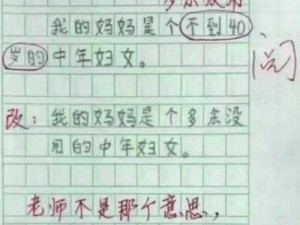 我的妈妈是个不到40
岁的中年妇女。
改：我的妈妈是个多余没
用的中年妇女。
老师不是那个意思，